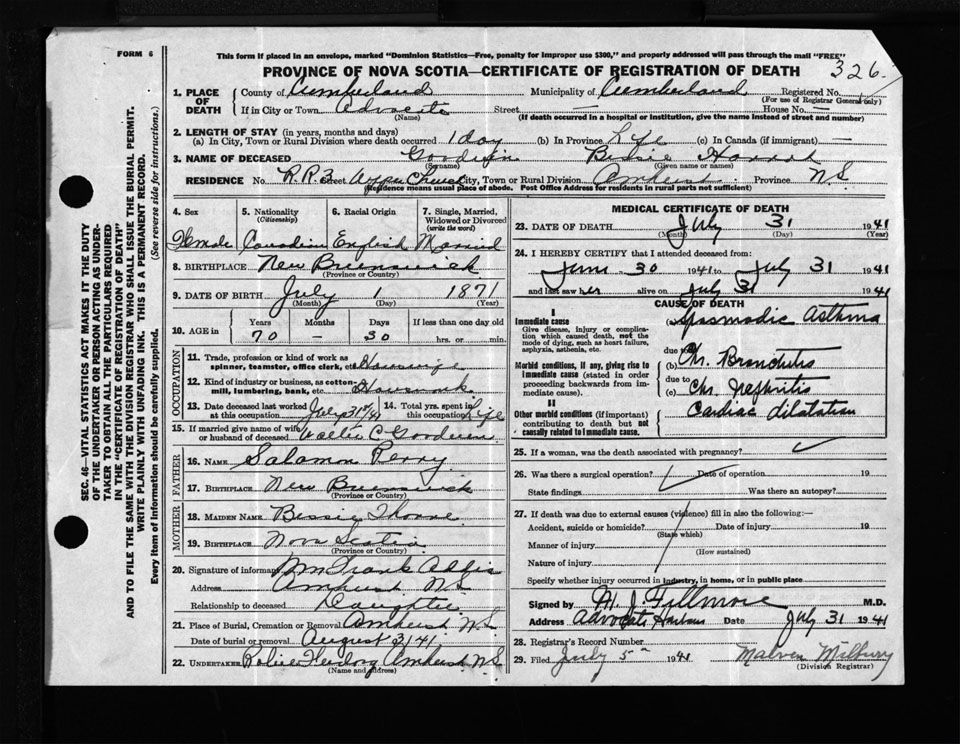 FORM 6
This form if placed in an envelope, marked "Dominion Statistics—Free, penalty for improper use $300," and properly addressed will pass through the mail "FREE"
326
PROVINCE OF NOVA SCOTIA—CERTIFICATE OF REGISTRATION OF DEATH
1. PLACE OF DEATH
County of Cumberland Municipality of Cumberland Registered No.
(For use of Registrar General only)
If in City or Town Advocate Street — House No. —
(Name) (If death occurred in a hospital or institution, give the name instead of street and number)
2. LENGTH OF STAY (in years, months and days)
(a) In City, Town or Rural Division where death occurred 1 day (b) In Province Life (c) In Canada (if immigrant) —
3. NAME OF DECEASED Goodwin Bessie Hannah
(Surname) (Given name or names)
RESIDENCE No. R.R.3 Street City, Town or Rural Division Amherst Province N.S.
(Residence means usual place of abode. Post Office Address for residents in rural parts not sufficient)
4. Sex 5. Nationality (Citizenship) 6. Racial Origin 7. Single, Married, Widowed or Divorced (write the word)
Female Canadian English Married
8. BIRTHPLACE New Brunswick
(Province or Country)
9. DATE OF BIRTH July 1 1871
(Month) (Day) (Year)
10. AGE in Years Months Days If less than one day old
70 — 30 hrs. or min.
OCCUPATION
11. Trade, profession or kind of work as spinner, teamster, office clerk, etc. Housewife
12. Kind of industry or business, as cotton-mill, lumbering, bank, etc. Housework
13. Date deceased last worked at this occupation July 31st/41 14. Total yrs. spent in this occupation Life
15. If married give name of wife or husband of deceased Walter C. Goodwin
FATHER
16. NAME Salamon Perry
17. BIRTHPLACE New Brunswick
(Province or Country)
MOTHER
18. MAIDEN NAME Bessie Thorne
19. BIRTHPLACE Nova Scotia
(Province or Country)
20. Signature of informant Frank
Address Amherst N.S.
Relationship to deceased Daughter
21. Place of Burial, Cremation or Removal Amherst N.S.
Date of burial or removal August 3/41
22. UNDERTAKER Amherst N.S.
(Name and address)
MEDICAL CERTIFICATE OF DEATH
23. DATE OF DEATH July 31 1941
(Month) (Day) (Year)
24. I HEREBY CERTIFY that I attended deceased from:
June 30 1941 to July 31 1941
and last saw her alive on July 31 1941
CAUSE OF DEATH
I
Immediate cause (a) Spasmodic Asthma
Give disease, injury or complication which caused death, not the mode of dying, such as heart failure, asphyxia, asthenia, etc.
due to
(b) Chr. Bronchitis
Morbid conditions, if any, giving rise to immediate cause (stated in order proceeding backwards from immediate cause)
due to
(c) Chr. Nephritis
II
Other morbid conditions (if important) contributing to death but not causally related to immediate cause.
Cardiac dilatation
25. If a woman, was the death associated with pregnancy?
26. Was there a surgical operation? Date of operation 19
State findings Was there an autopsy?
27. If death was due to external causes (violence) fill in also the following:—
Accident, suicide or homicide? Date of injury 19
(State which)
Manner of injury
(How sustained)
Nature of injury
Specify whether injury occurred in industry, in home, or in public place
Signed by M. J. Fillmore M.D.
Address Advocate Harbour Date July 31 1941
28. Registrar's Record Number
29. Filed July 1941 Malven Milbury
(Division Registrar)
SEC. 46—VITAL STATISTICS ACT MAKES IT THE DUTY
OF THE UNDERTAKER OR PERSON ACTING AS UNDER-
TAKER TO OBTAIN ALL THE PARTICULARS REQUIRED
IN THE "CERTIFICATE OF REGISTRATION OF DEATH"
AND TO FILE THE SAME WITH THE DIVISION REGISTRAR WHO SHALL ISSUE THE BURIAL PERMIT.
WRITE PLAINLY WITH UNFADING INK. THIS IS A PERMANENT RECORD.
Every item of information should be carefully supplied. (See reverse side for instructions.)